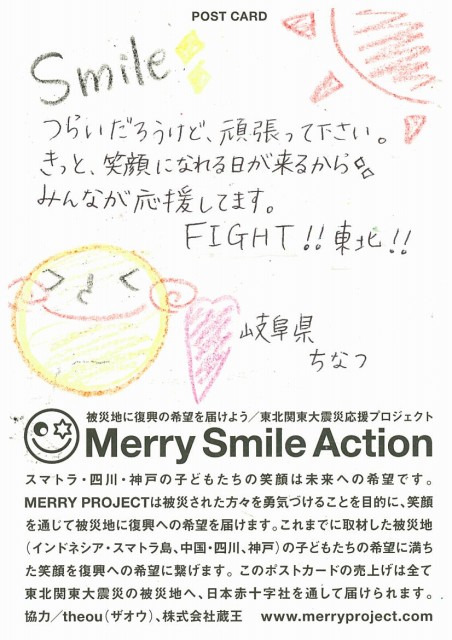 POST CARD
Smile
つらいだろうけど、頑張って下さい。
きっと、笑顔になれる日が来るから
みんなが応援してます。
FIGHT!!東北!!
岐阜県
ちなつ
被災地に復興の希望を届けよう/東北関東大震災応援プロジェクト
Merry Smile Action
スマトラ・四川・神戸の子どもたちの笑顔は未来への希望です。
MERRY PROJECTは被災された方々を勇気づけることを目的に、笑顔
を通じて被災地に復興への希望を届けます。これまでに取材した被災地
(インドネシア・スマトラ島、中国・四川、神戸)の子どもたちの希望に満ち
た笑顔を復興への希望に繋げます。このポストカードの売上げは全て
東北関東大震災の被災地へ、日本赤十字社を通して届けられます。
協力/theou(ザオウ)、株式会社蔵王 www.merryproject.com